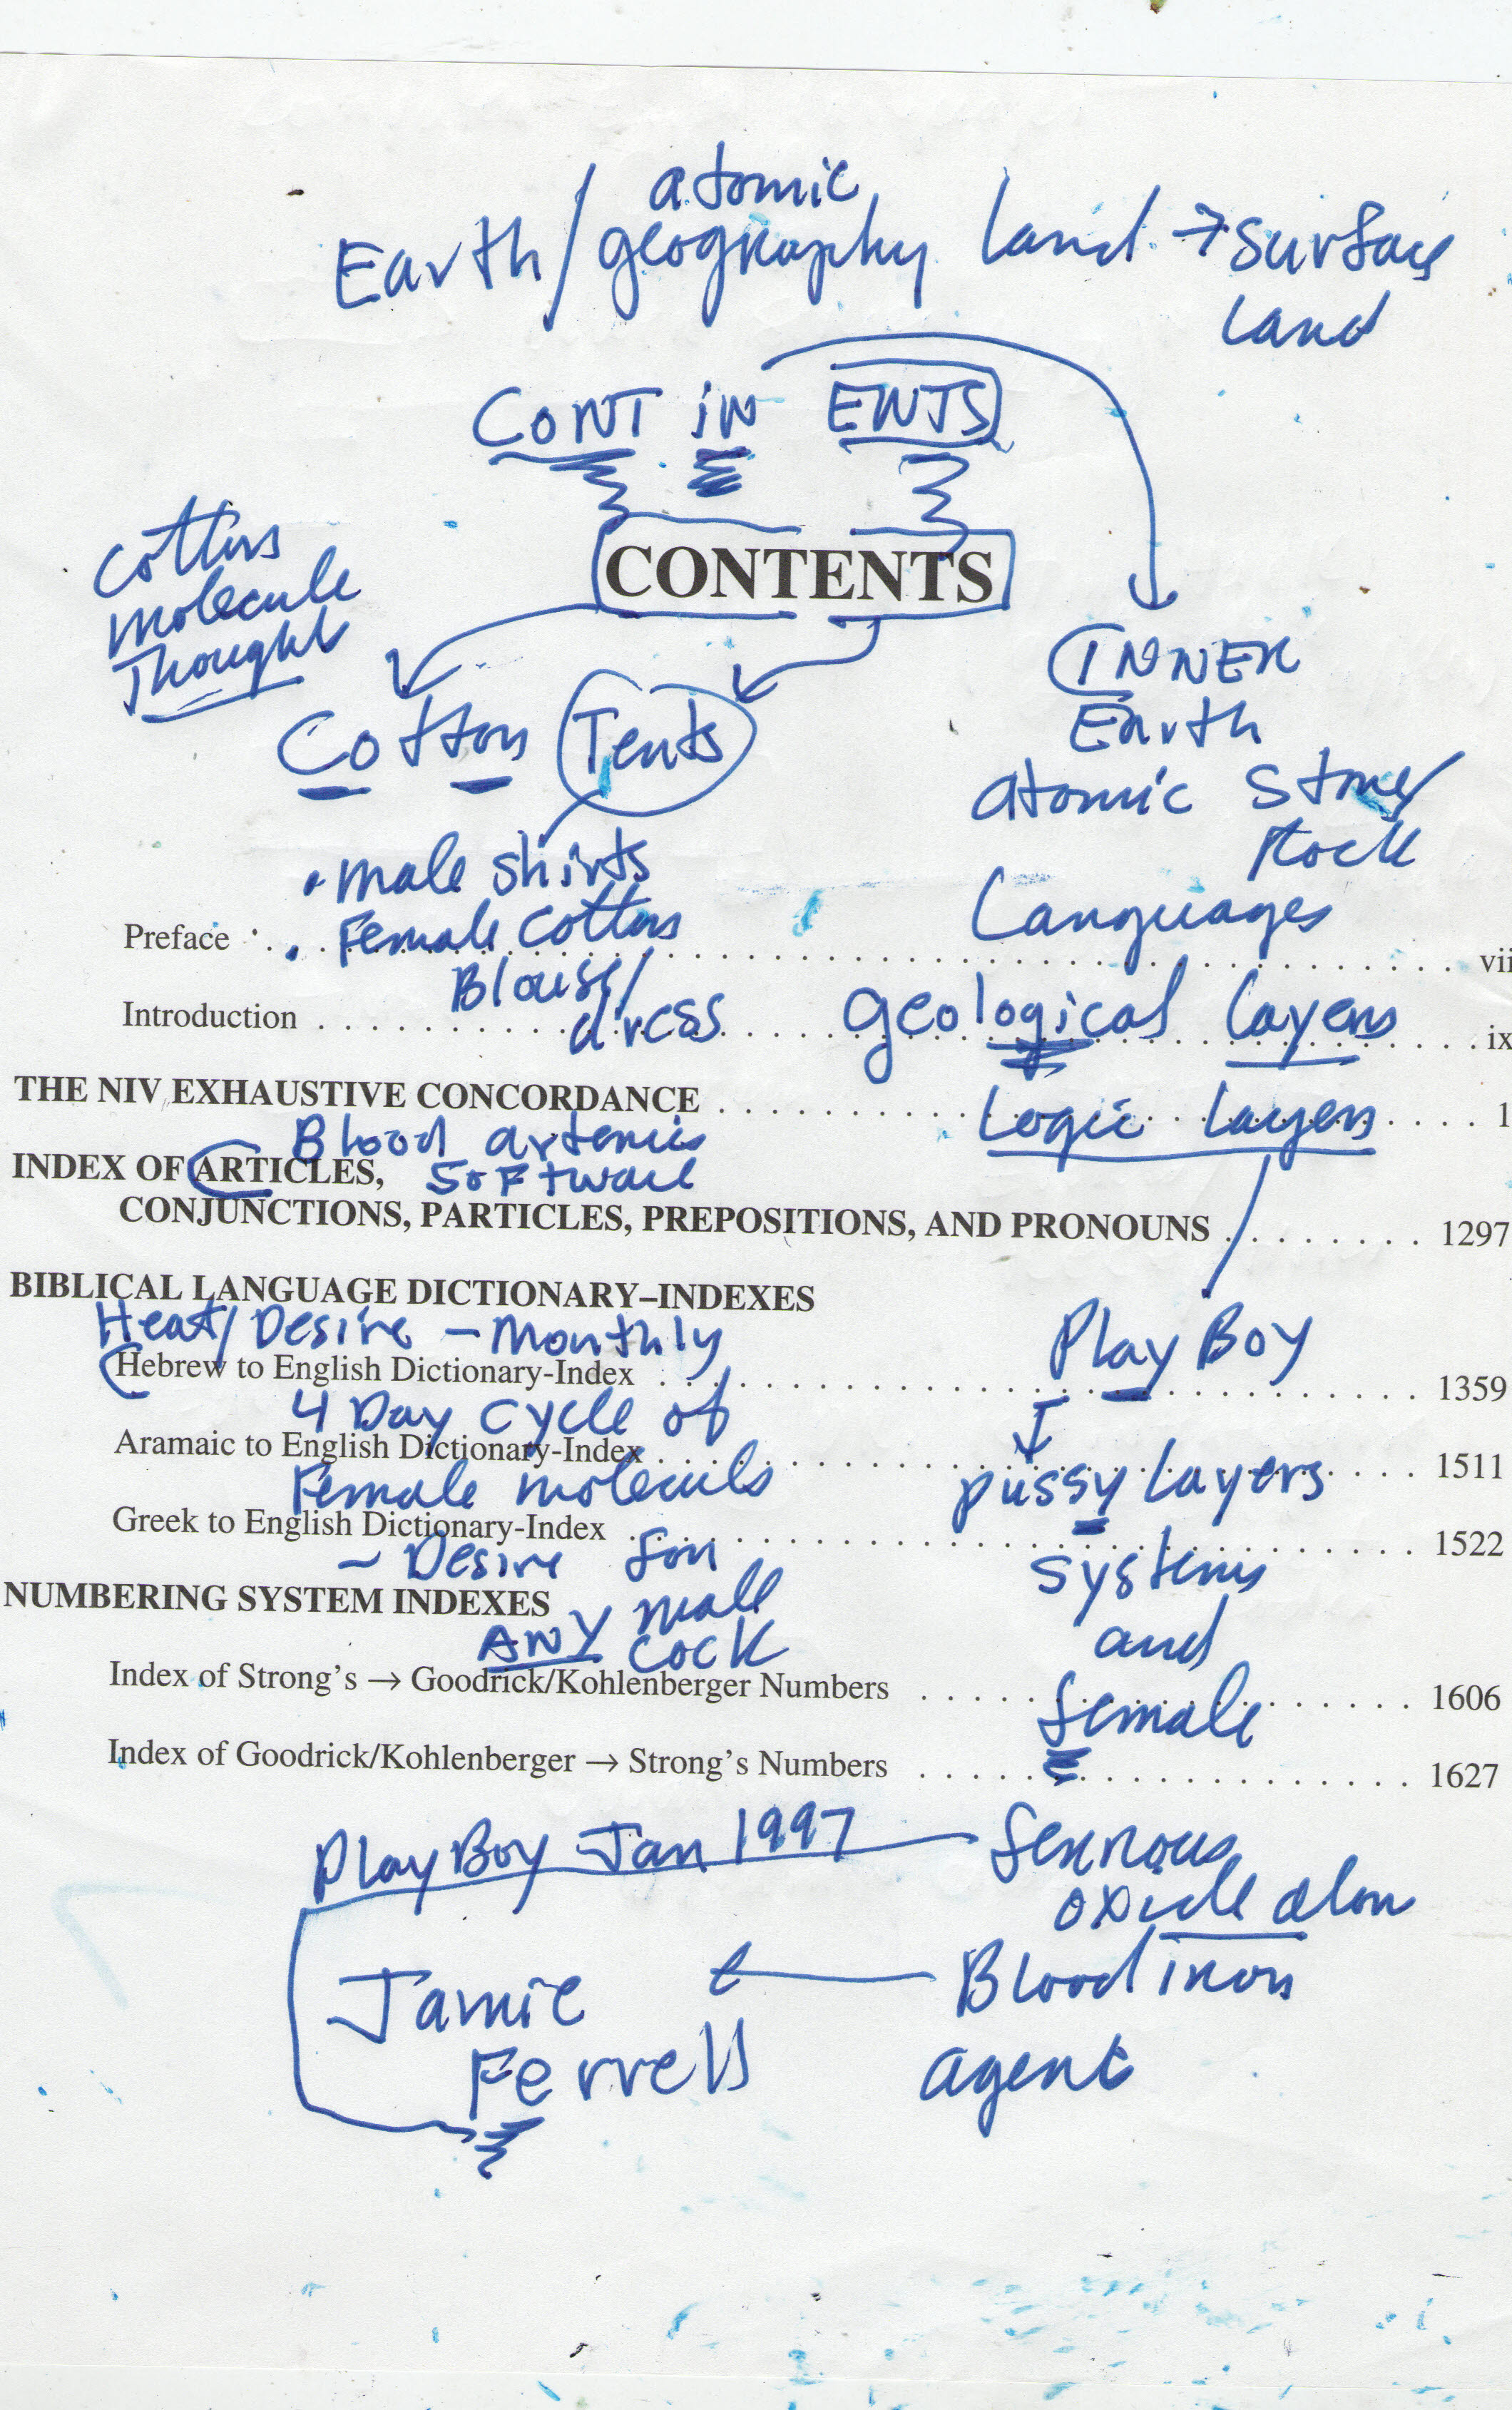 atomic
Earth/geography land → surface
land
CONT iN ENTS
CONTENTS
Cottons
molecule
Thought
Cotton Tents
INNER
Earth
atomic Stone/
Rock
Languages
• male shirts
Preface . . . . . . . . . . vii
• Female Cottons
Blouse/
dress
Introduction . . . . . . . . . . ix
geological layers
THE NIV EXHAUSTIVE CONCORDANCE . . . . . . . . . . 1
Logic layers
Blood arteries
INDEX OF ARTICLES,
SOFTware
CONJUNCTIONS, PARTICLES, PREPOSITIONS, AND PRONOUNS . . . . . . . . 1297
BIBLICAL LANGUAGE DICTIONARY–INDEXES
Heat/Desire – Monthly
Play Boy
Hebrew to English Dictionary-Index . . . . . . . . . . 1359
4 Day cycle of
Aramaic to English Dictionary-Index . . . . . . . . . . 1511
Female molecules
pussy layers
Greek to English Dictionary-Index . . . . . . . . . . 1522
– Desire for
systems
NUMBERING SYSTEM INDEXES
ANY male
cock
and
Index of Strong's → Goodrick/Kohlenberger Numbers . . . . . . . . . . 1606
female
Index of Goodrick/Kohlenberger → Strong's Numbers . . . . . . . . . . 1627
PlayBoy Jan 1997
ferrous
oxide
Blood iron
agent
Jamie
Ferrell